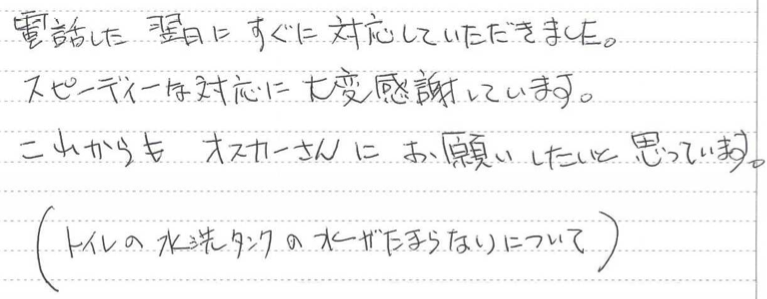 電話した 翌日に すぐに 対応していただきました。
スピーディーな対応に 大変感謝しています。
これからも オスカーさんに お願いしたいと 思っています。
(トイレの 水洗タンクの 水がたまらない)について)